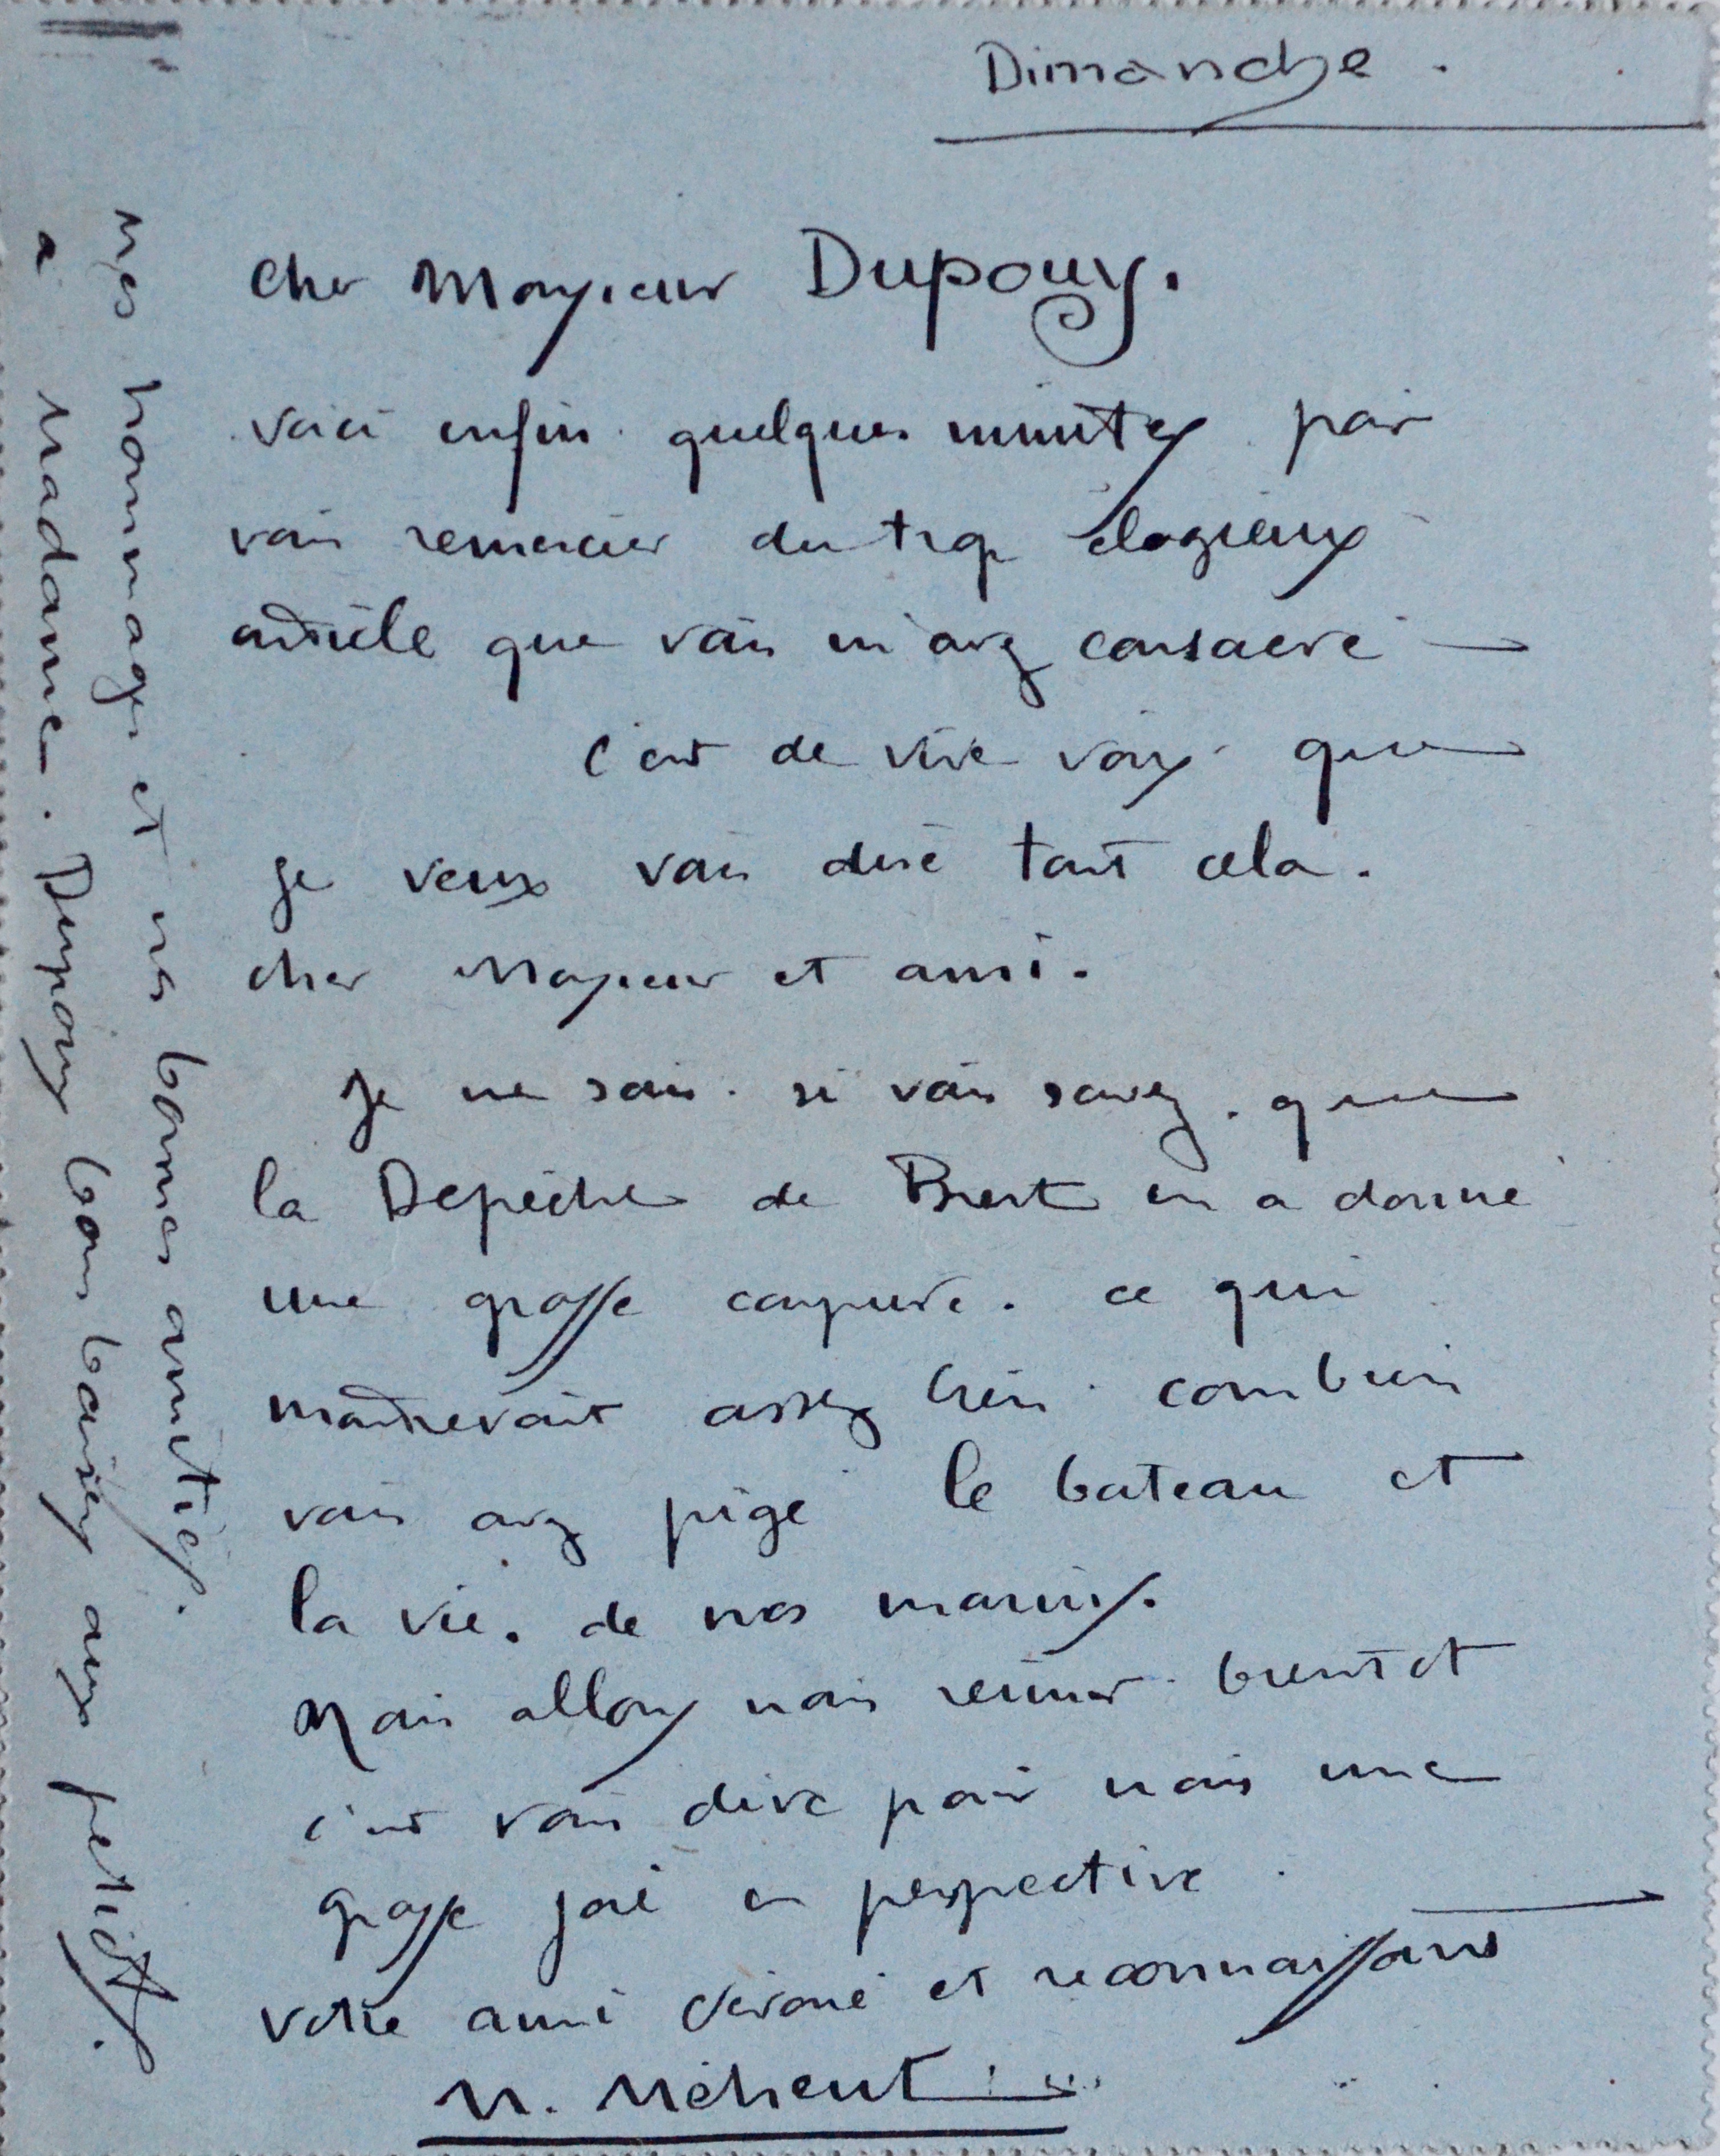 Dimanche.
Cher Monsieur Dupouy.
voici enfin quelques minutes pour
vous remercier du trop élogieux
article que vous m'avez consacré —
c'est de vive voix que
je veux vous dire tout cela.
cher Monsieur et ami.
Je ne sais si vous savez. que
la Depêche de Brest en a donné
une grosse coupure. ce qui
montrerait assez bien combien
vous avez pigé le bateau et
la vie. de nos marins.
Nous allons nous réunir bientôt
c'est vous dire pour nous une
grosse joie en perspective.
votre ami dévoué et reconnaissant
M. Méheut
mes hommages et nos bonnes amitiés.
a Madame. Dupouy bons baisers aux petiots.